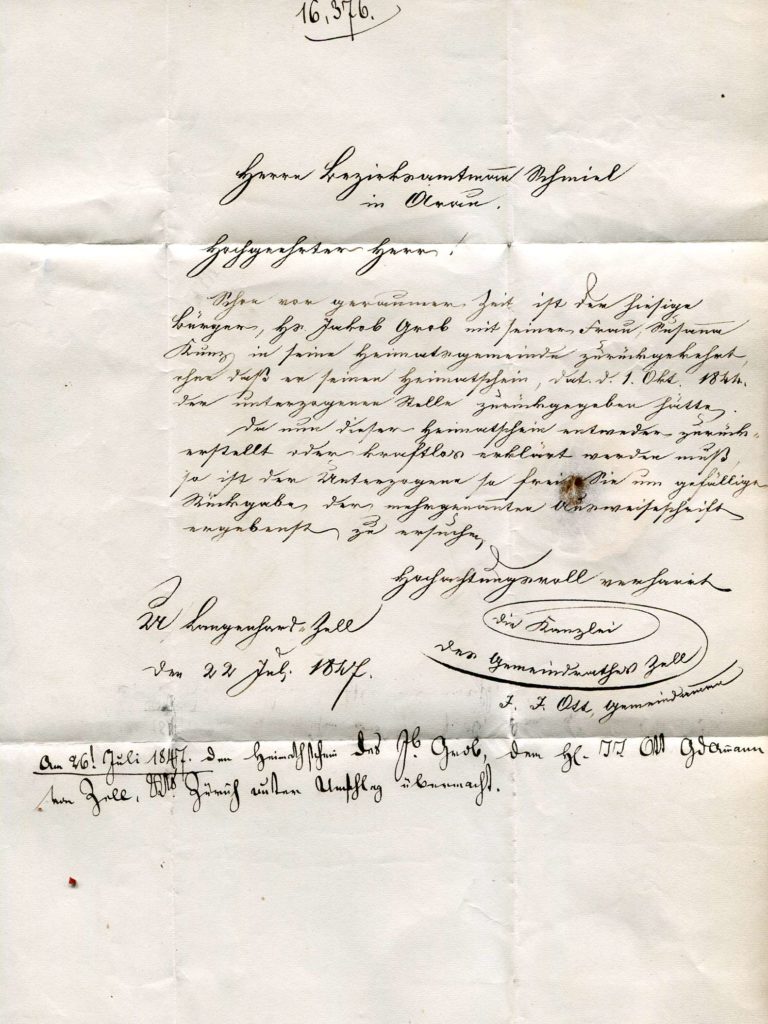 16,376.
Herrn Bezirksamtmann Schmiel
in Arau.
Hochgeehrter Herr!
Schon vor geraumer Zeit ist der hiesige
Bürger, Hs. Jakob Grob mit seiner Frau, Susanna
Kunz in seine Heimatsgemeinde zurückgekehrt,
ohne daß er seinen Heimatschein, dat. d. 1. Okt. 1844.
der unterzogenen Stelle zurückgegeben hätte.
Da nun dieser Heimatschein entweder zurück-
erstellt oder kraftlos erklärt werden muß,
so ist der Unterzogene so frei, Sie um gefällige
Rückgabe der mehrgenannten Ausweisschrift
ergebenst zu ersuchen,
Hochachtungsvoll verharrt
Langenhard-Zell
den 22 Jul. 1847.
die Kanzlei
des Gemeindrathes Zell
J. J. Ott, Gemeindamman
Am 26t Juli 1847. den Heimathschein des Jb. Grob, dem H. JJ Ott Gdammann
von Zell, Zürich unter Umschlag übermacht.